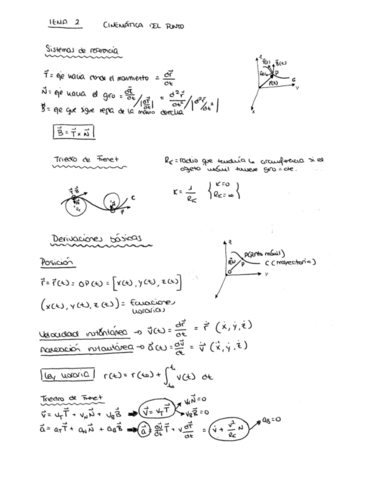 TEMA 2 CINEMÁTICA DEL PUNTO
Sistemas de referencia
T⃗ = eje hacia donde el movimiento = dr⃗/dt
N⃗ = eje hacia el giro =
B⃗ = eje que sigue regla de la mano derecha
B⃗ = T⃗ x N⃗
Triedro de Frenet
Rc = radio que tendría la circunferencia si el objeto móvil tuviese giro = cte.
K = 1/Rc { K=0 Rc=∞ }
Derivaciones básicas
Posición
r⃗ = r⃗(t) = OP(t) = [x(t), y(t), z(t)]
P (punto móvil)
C (trayectoria)
(x(t), y(t), z(t)) = ecuaciones horarias
Velocidad instantánea → v⃗(t) = dr⃗/dt = r⃗̇ (ẋ, ẏ, ż)
Aceleración instantánea → a⃗(t) = dv⃗/dt = v⃗̇ (ẋ, ẏ, ż)
Ley horaria r(t) = r(t₀) + ∫ v(t) dt
Triedro de Frenet
v⃗ = v_T T⃗ + v_N N⃗ + v_B B⃗ → v⃗ = v_T T⃗ v_N N⃗=0 v_B B⃗=0
a⃗ = a_T T⃗ + a_N N⃗ + a_B B⃗ → a⃗ = dv/dt T⃗ + v dT⃗/dt = v̇ + v²/Rc N⃗ → a_B=0